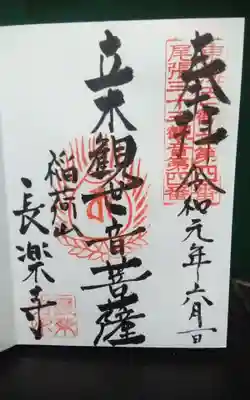 奉拝 令和元年六月一日
立木観世音菩薩
稲荷山
長楽寺